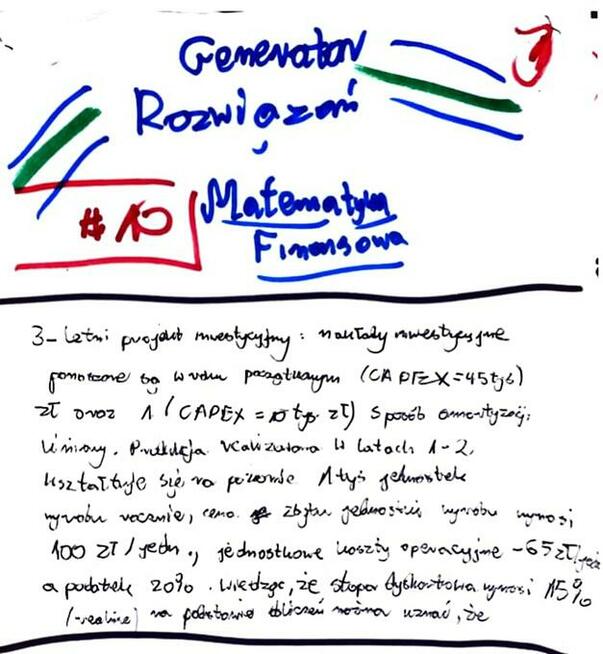 Generator
Rozwiązań
#10
Matematyka
Finansowa
3-letni projekt inwestycyjny: nakłady inwestycyjne
ponoszone są w roku początkowym (CAPEX=45 tyś)
zł oraz 1 (CAPEX = tyś. zł) sposób amortyzacji:
liniowy. Produkcja realizowana w latach 1-2,
kształtuje się na poziomie 1tyś jednostek
wyrobu rocznie, cena zbytu jednostki wyrobu wynosi
100 zł/jedn., jednostkowe koszty operacyjne - 65 zł/
a podatek 20%. Wiedząc, że stopa dyskontowa wynosi 15%
na podstawie obliczeń można uznać, że